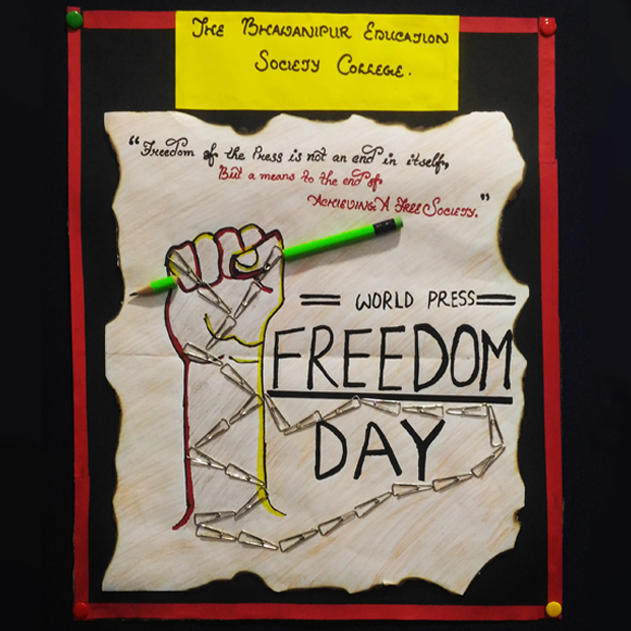 THE BHAWANIPUR EDUCATION
SOCIETY COLLEGE.
"Freedom of the Press is not an end in itself,
But a means to the end of
ACHIEVING A FREE SOCIETY."
WORLD PRESS
FREEDOM
DAY